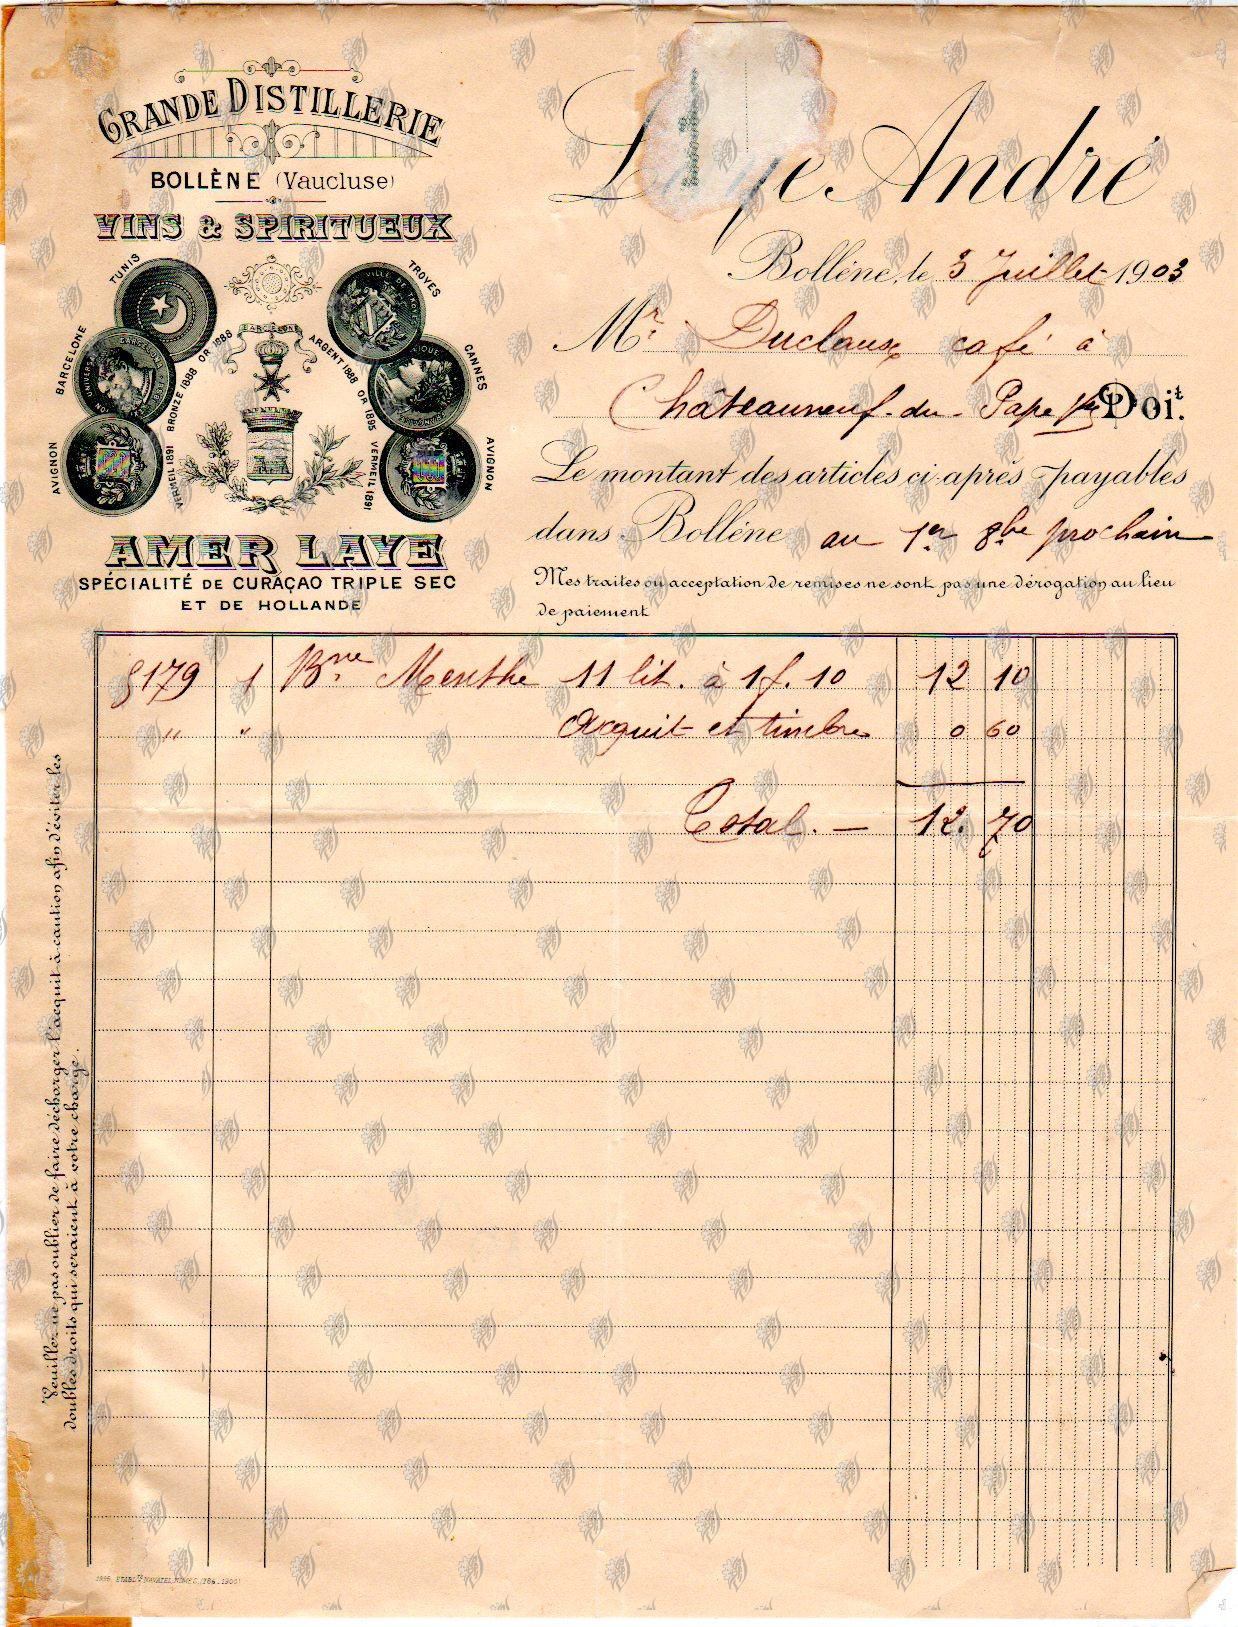 GRANDE DISTILLERIE
BOLLÈNE (Vaucluse)
VINS & SPIRITUEUX
TUNIS
TROYES
BARCELONE
CANNES
AVIGNON
AVIGNON
OR 1888
BRONZE 1888
VERMEIL 1891
ARGENT 1888
OR 1895
VERMEIL 1891
BARCELONE
AMER LAYE
SPÉCIALITÉ DE CURAÇAO TRIPLE SEC
ET DE HOLLANDE
André
Bollène, le 3 Juillet 1903
Mr. Duclaux café à
Châteauneuf-du-Pape Doit.
Le montant des articles ci après payables
dans Bollène au 1er 8bre prochain
Mes traites ou acceptation de remises ne sont pas une dérogation au lieu
de paiement
8179 1 Bne Menthe 11 lit. à 1f.10 12 10
" " Acquit et timbre 0 60
Total. — 12. 70
Veuillez ne pas oublier de faire décharger l'acquit-à-caution afin d'éviter les
doubles droits qui seraient à votre charge.